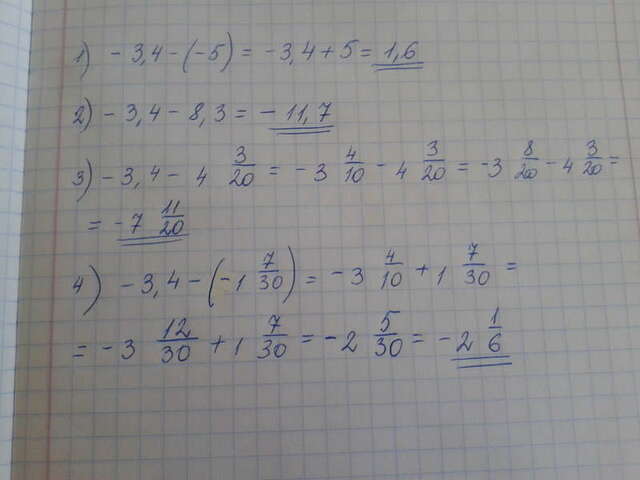 1) - 3,4 - (-5) = -3,4 + 5 = 1,6
2) - 3,4 - 8,3 = - 11,7
3) - 3,4 - 4 3/20 = - 3 4/10 - 4 3/20 = -3 8/20 - 4 3/20 =
= - 7 11/20
4) - 3,4 - (-1 7/30) = - 3 4/10 + 1 7/30 =
= - 3 12/30 + 1 7/30 = - 2 5/30 = - 2 1/6